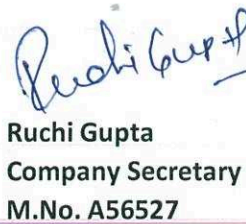 Ruchi Gupta
Ruchi Gupta
Company Secretary
M.No. A56527